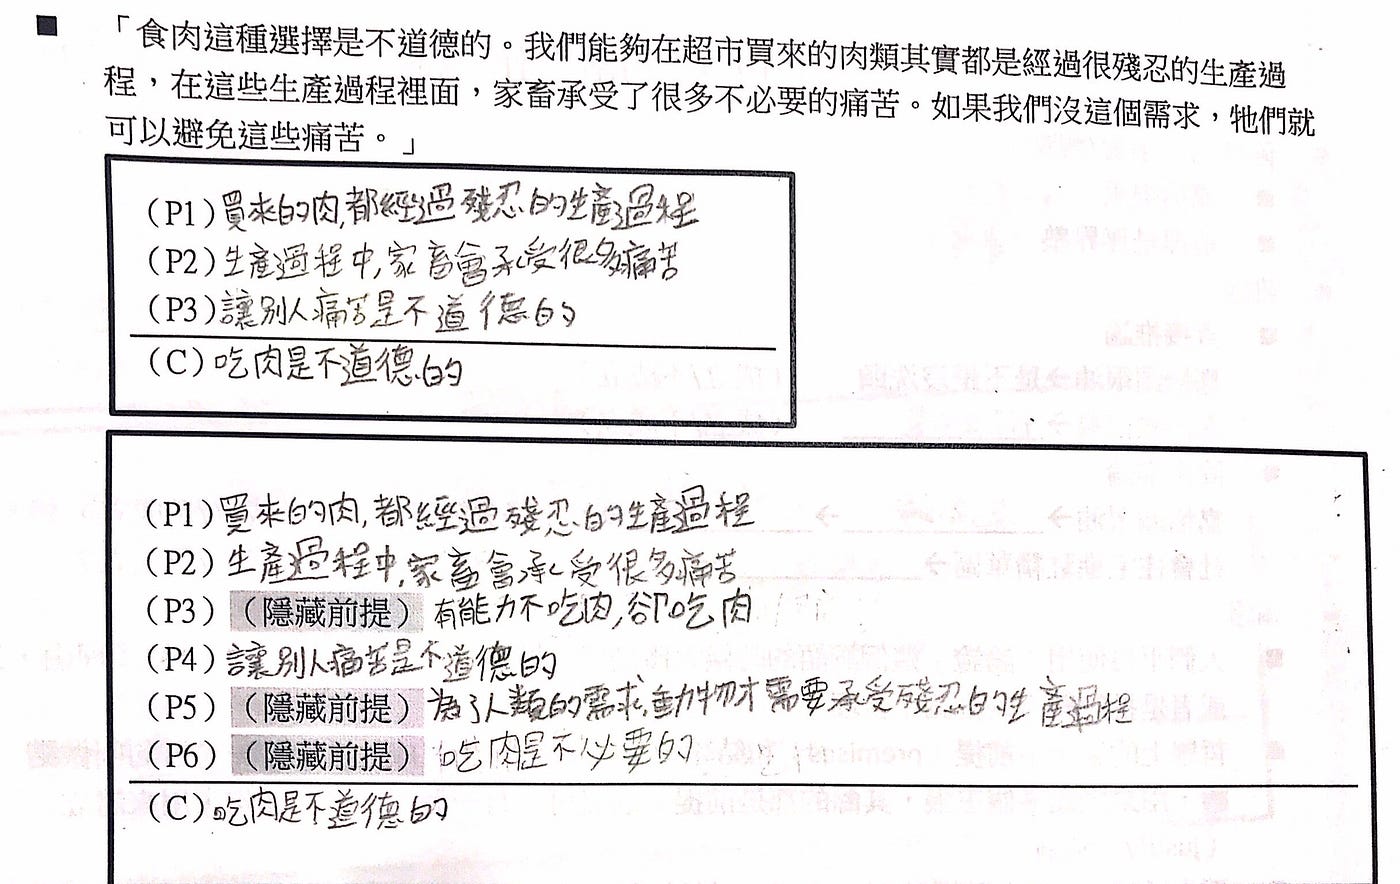 ■ 「食肉這種選擇是不道德的。我們能夠在超市買來的肉類其實都是經過很殘忍的生產過
程，在這些生產過程裡面，家畜承受了很多不必要的痛苦。如果我們沒這個需求，牠們就
可以避免這些痛苦。」
(P1) 買來的肉,都經過殘忍的生產過程
(P2) 生產過程中,家畜會承受很多痛苦
(P3) 讓別人痛苦是不道德的
(C) 吃肉是不道德的
(P1) 買來的肉,都經過殘忍的生產過程
(P2) 生產過程中,家畜會承受很多痛苦
(P3) （隱藏前提） 有能力不吃肉,卻吃肉
(P4) 讓別人痛苦是不道德的
(P5) （隱藏前提） 為了人類的需求,動物才需要承受殘忍的生產過程
(P6) （隱藏前提） 吃肉是不必要的
(C) 吃肉是不道德的